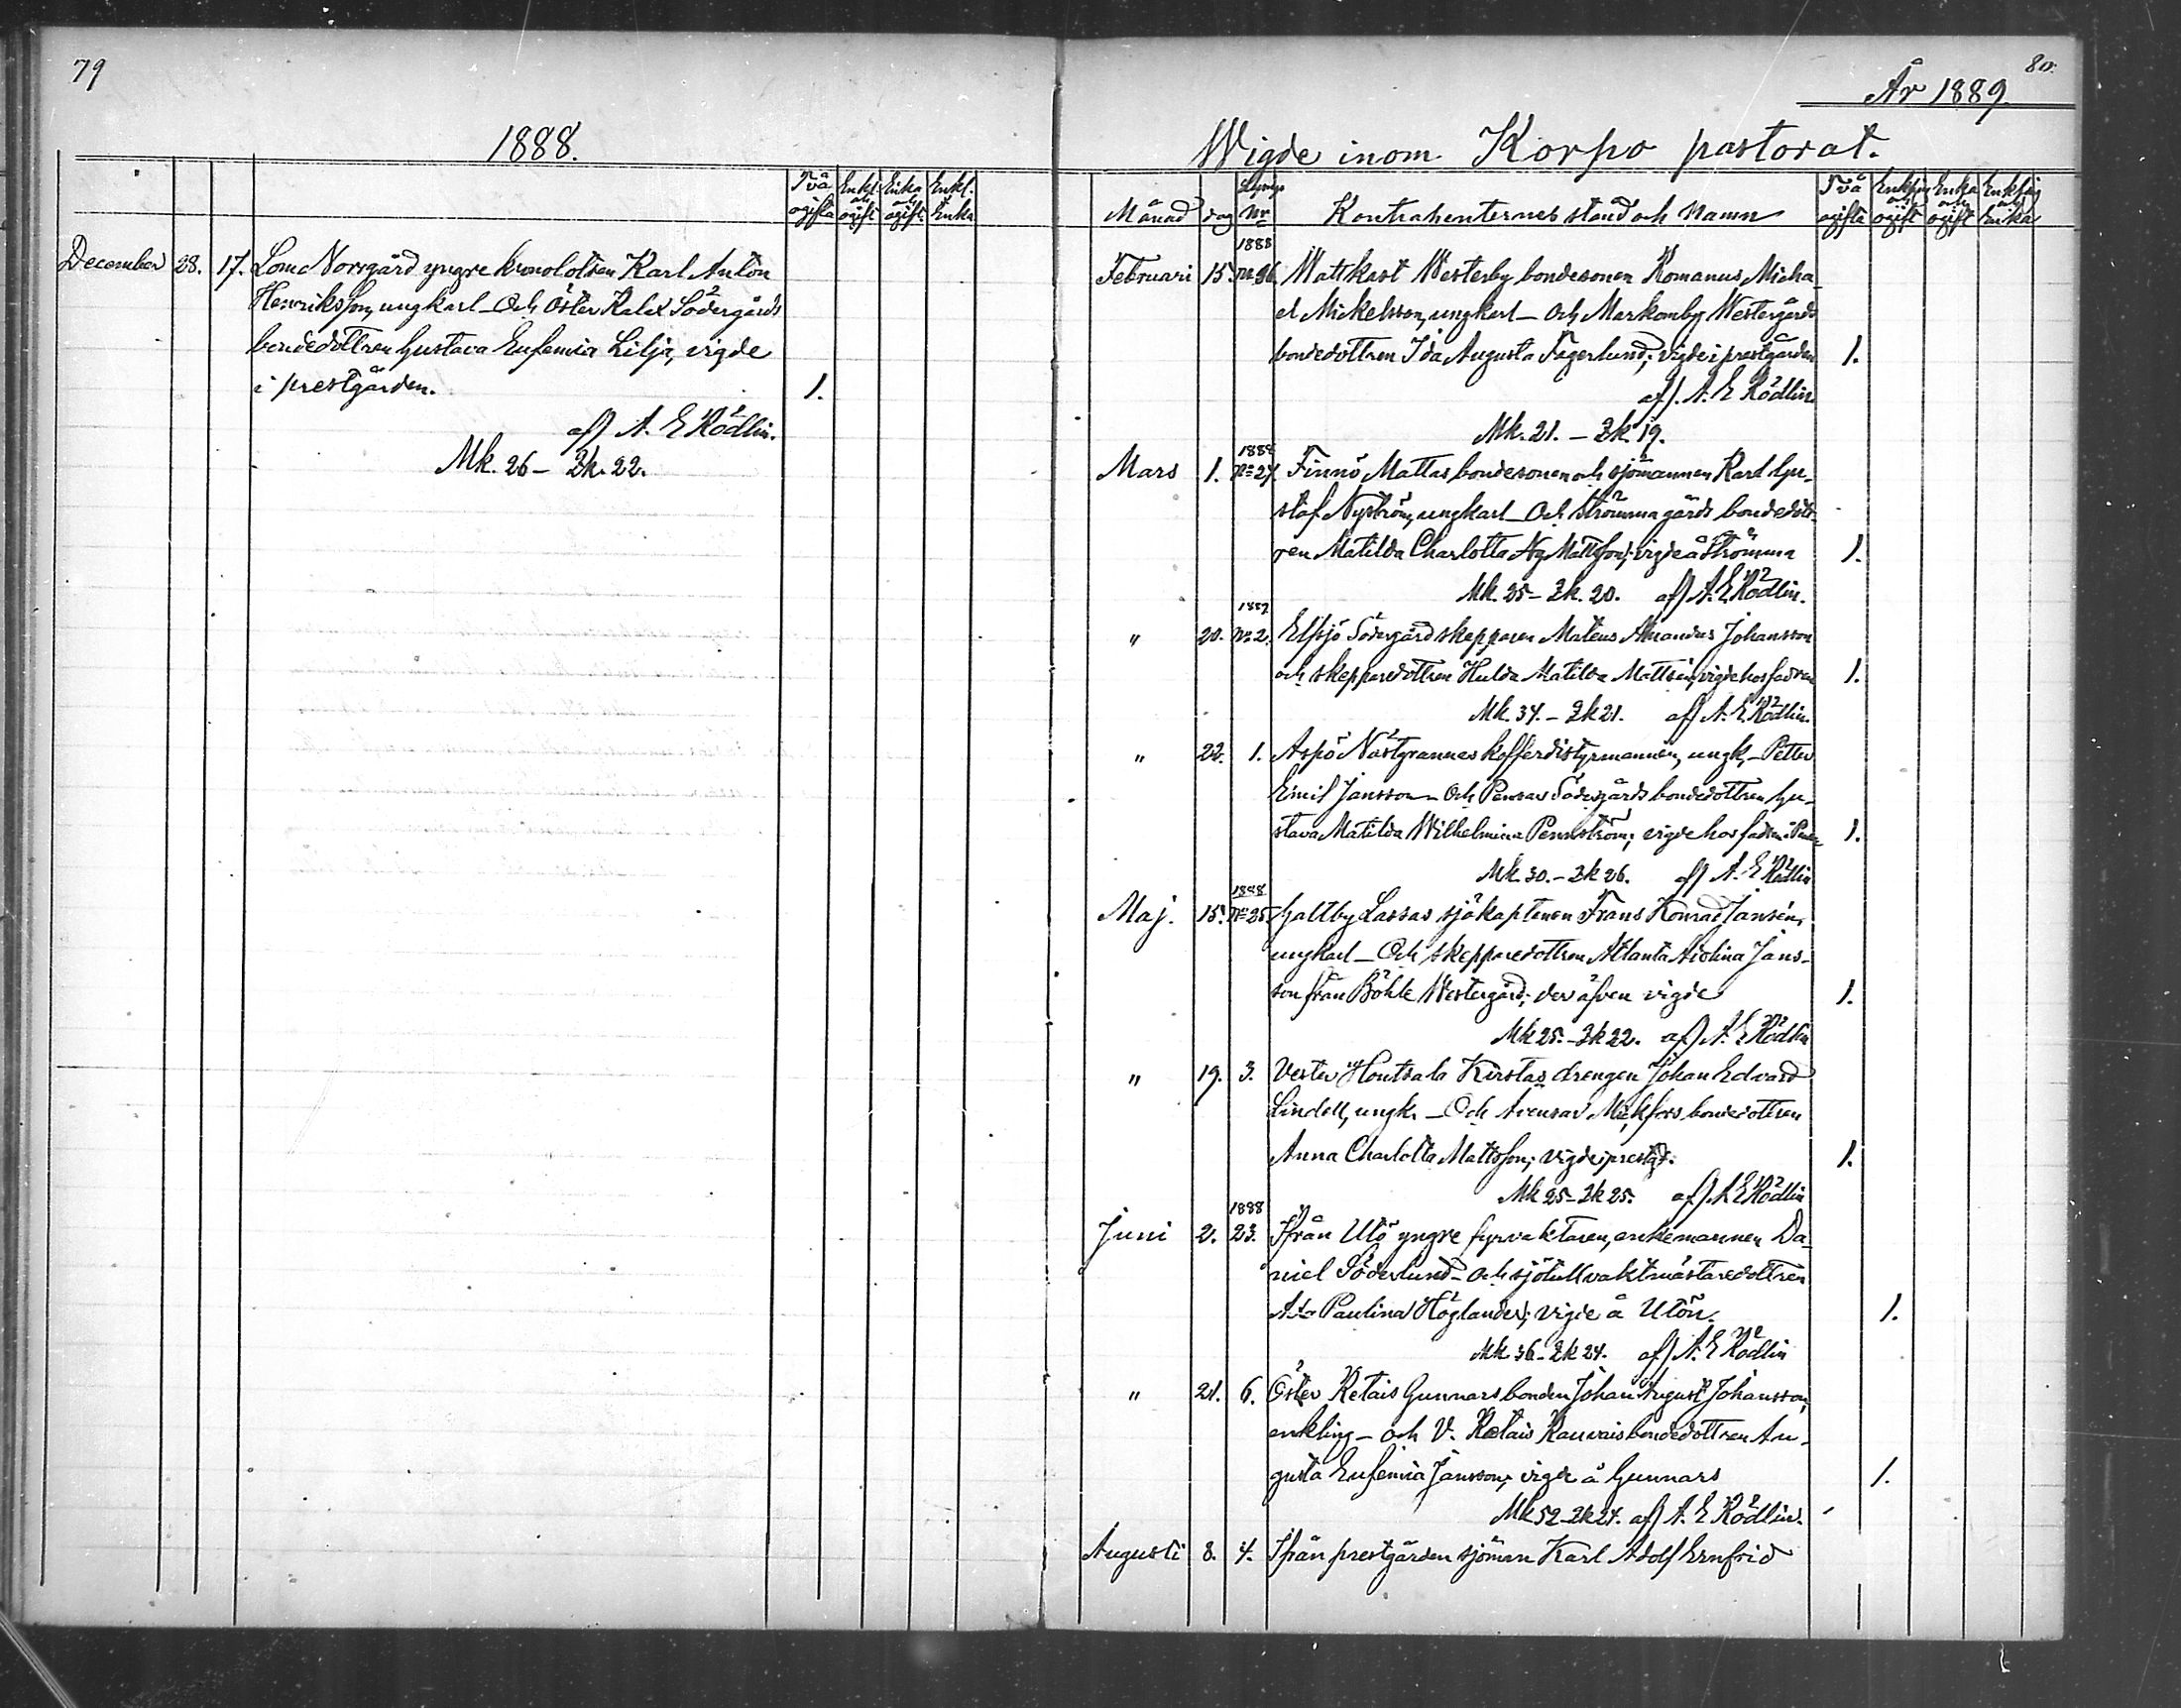 79
1888.
Två ogifta
Enkl. och ogift
Enka och ogift
Enkl. o Enka
December 28. 17. Lom Norrgård yngre kronolotsen Karl Anton
Henriksson, ungkarl – Och Öster Kalax Södergårds
bondedottren Gustava Eufemia Lilja, vigde
i prestgården. 1.
af A. E Rödlin.
Mk. 26 – Qk. 22.
80.
År 1889.
Wigde inom Korpo pastorat.
Månad dag Nr Kontrahenternes stånd och Namn
Två ogifta
Enkling och ogift
Enka och ogift
Enkling och Enka
1888
Februari 15. No 26. Wattkast Westerby bondesonen Romanus Micha-
el Mickelsson, ungkarl – Och Markomby Westergårds
bondedottren Ida Augusta Fagerlund; vigde i prestgården 1.
af. A. E Rödlin.
Mk. 21. – Qk. 19.
1888
Mars 1. No 27. Finnö Mattas bondesonen och sjömannen Karl Gu-
staf Nyström, ungkarl – Och Strömma gårds bondedott-
ren Matilda Charlotta Mattsson; vigde å Strömma 1.
Mk. 25 – Qk. 20. af A. E Rödlin.
1889
" 20. No 2. Elfsjö Södergård skepparen Mateus Amandus Johansson
och skepparedottren Hulda Matilda Mattsén, vigde hos fadren 1.
Mk. 34. – Qk 21. af A. E Rödlin.
" 22. 1. Aspö Nästgrannas kofferdistyrmannen, ungk. – Petter
Emil Jansson – Och Pensar Södergårds bondedottren Gu-
stava Matilda Wilhelmina Pennström; vigde hos fadren i 1.
Mk. 30. – Qk 26. af A. E Rödlin
1888
Maj. 15. No 25. Galtby Lassas sjökaptenen Frans Konrad Jansén,
ungkarl – Och skepparedottren Atlanta Jans-
son från Böhle Westergård; der äfven vigde 1.
Mk 25. – Qk 22. af A. E Rödlin
" 19. 3. Vester Houtsala Kirstas drengen Johan Edvard
Lindell, ungk. – Och Avensar bondedottren
Anna Charlotta Mattsson; vigde i prestg. 1.
Mk 25 – Qk 25. af A. E Rödlin
1888
Juni 2. 23. Ifrån Utö yngre fyrvaktaren, enkemannen Da-
niel Söderlund – Och sjötullvaktmästaredottren
Paulina Höglander; vigde å Utön. 1.
Mk 36 – Qk 24. af A. E Rödlin
" 21. 6. Öster Retais Gunnars bonden Johan August Johansson,
enkling – och V. Retais Rauvais bondedottren Au-
gusta Eufemia Jansson, vigde å Gunnars 1.
Mk 52 – Qk 24. af A. E Rödlin.
Augusti 8. 4. Ifrån prestgården sjöman Karl Adolf Ernfrid